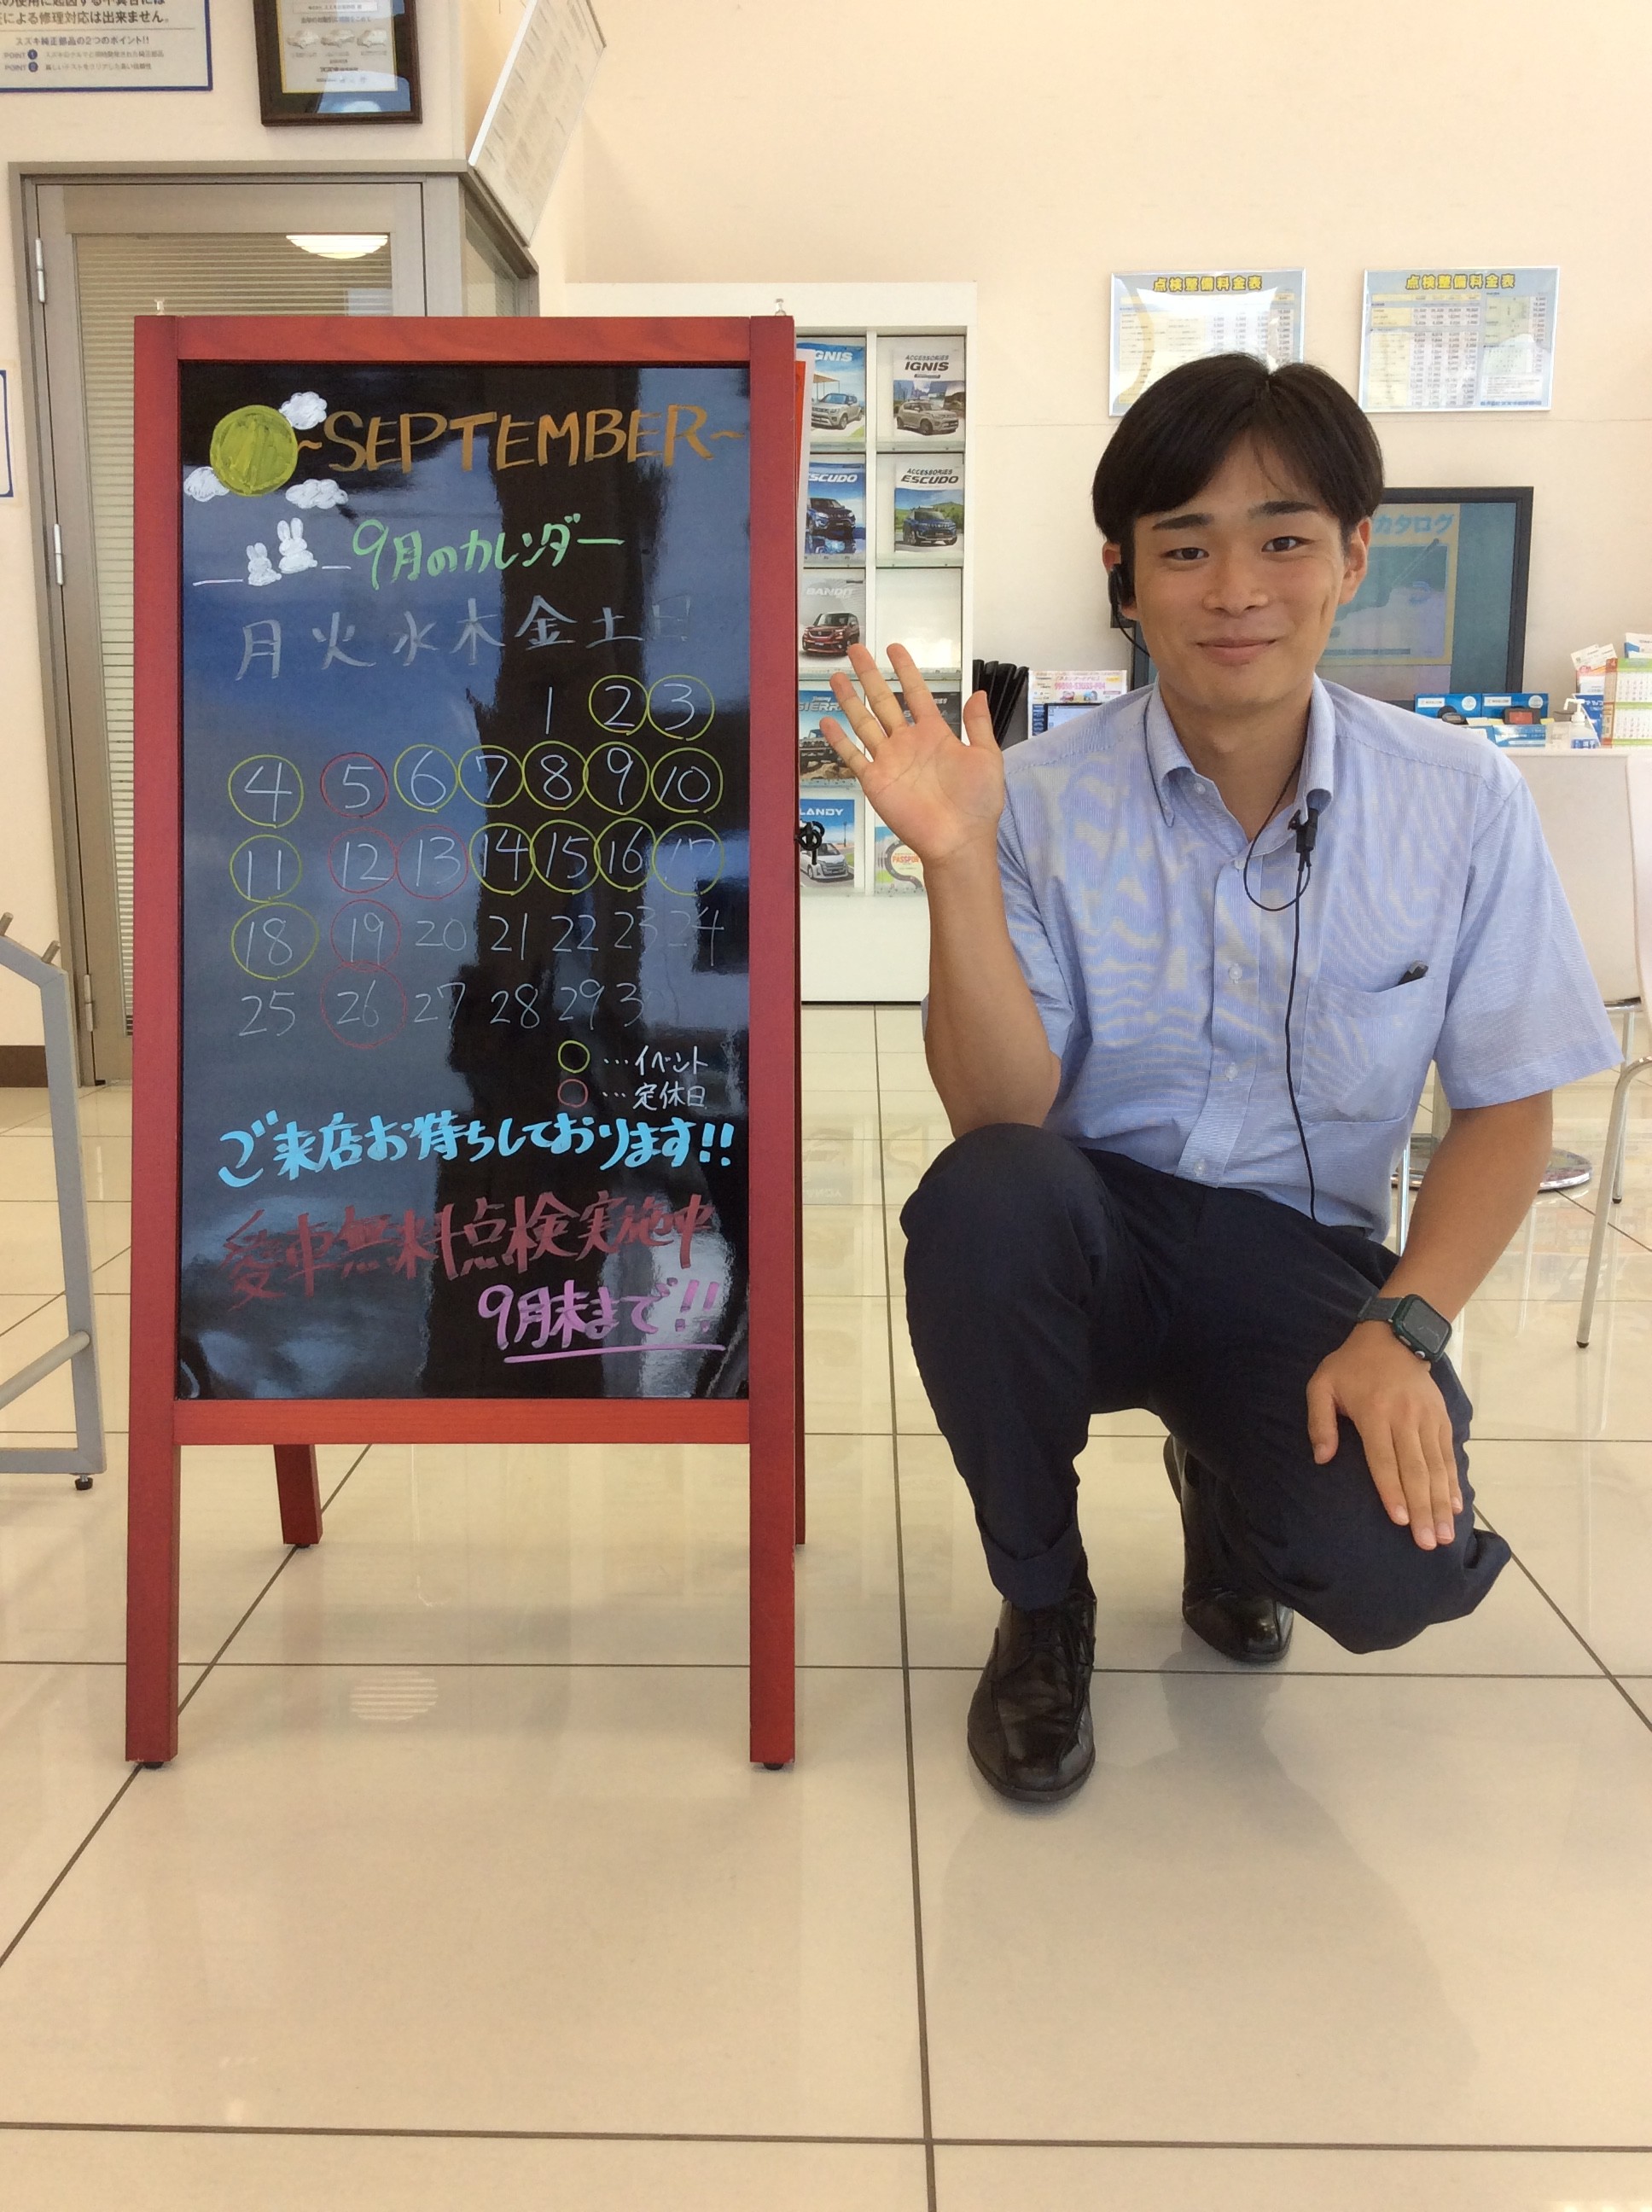 による修理対応は出来ません。
スズキ純正部品の2つのポイント!!
POINT 1
POINT 2
点検整備料金表
点検整備料金表
IGNIS
ACCESSORIES
IGNIS
ESCUDO
ACCESSORIES
ESCUDO
BANDIT
SIERRA
LANDY
カタログ
~SEPTEMBER~
9月のカレンダー
月 火 水 木 金 土 日
1 2 3
4 5 6 7 8 9 10
11 12 13 14 15 16 17
18 19 20 21 22 23 24
25 26 27 28 29 3
○…イベント
○…定休日
ご来店お待ちしております!!
愛車無料点検実施中
9月末まで!!